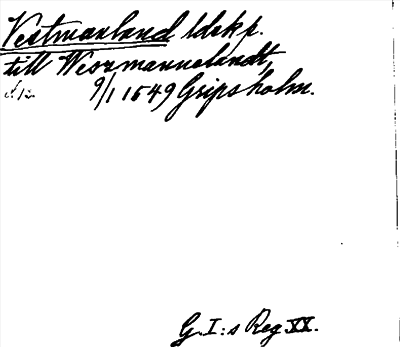 Vestmanland ldskp.
till Wesmannelandt,
9/1 1549 Gripsholm.
G.I:s Reg XX.